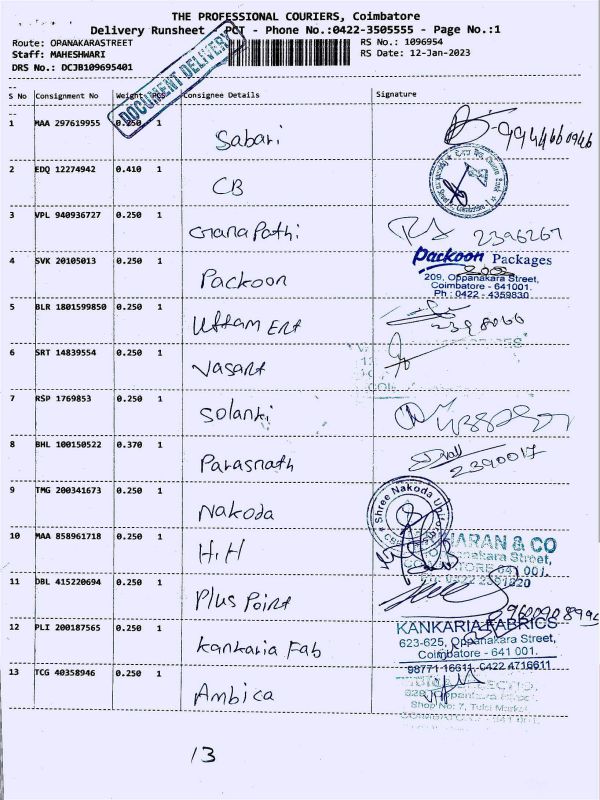 THE PROFESSIONAL COURIERS, Coimbatore
Delivery Runsheet - PCT - Phone No.:0422-3505555 - Page No.:1
Route: OPANAKARASTREET RS No.: 1096954
Staff: MAHESHWARI RS Date: 12-Jan-2023
DRS No.: DCJB109695401
DOCUMENT DELIVERY
S No Consignment No Weight PCS Consignee Details Signature
1 MAA 297619955 0.250 1 Sabari 9944660946
2 EDQ 12274942 0.410 1 CB
3 VPL 940936727 0.250 1 GanaPathi 2396267
4 SVK 20105013 0.250 1 Packoon
Packoon Packages
209, Oppanakara Street,
Coimbatore - 641001.
Ph : 0422 - 4359830
5 BLR 1801599850 0.250 1 Uttam Ent 2398066
6 SRT 14839554 0.250 1 Vasant
7 RSP 1769853 0.250 1 Solanki
8 BHL 100150522 0.370 1 Parasnath 2390017
9 TMG 200341673 0.250 1 Nakoda
Shree Nakoda
10 MAA 858961718 0.250 1 H.H
HARAN & CO
Street,
641 001.
11 DBL 415220694 0.250 1 Plus Point
12 PLI 200187565 0.250 1 Kankaria Fab
KANKARIA FABRICS
623-625, Oppanakara Street,
Coimbatore - 641 001.
98771 16611, 0422 4716611
13 TCG 40358946 0.250 1 Ambica
Shop No: 7, Tulsi Market
13